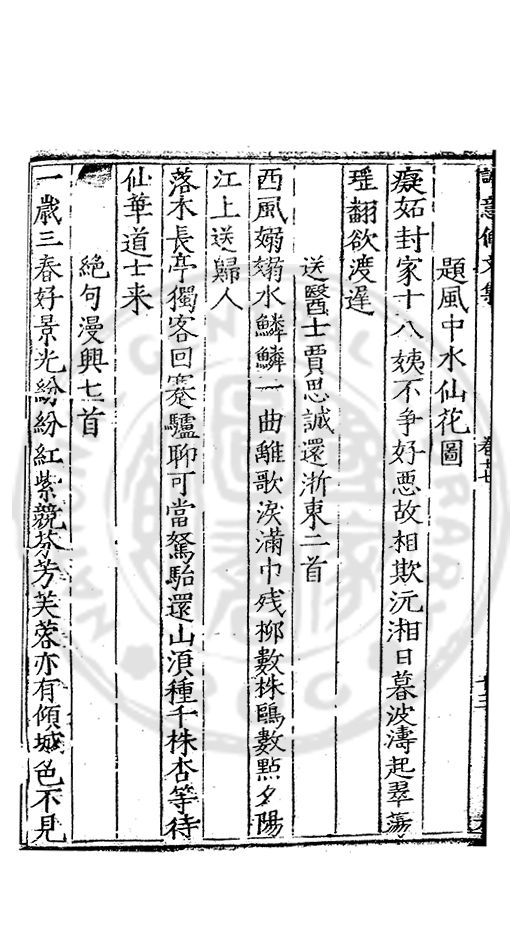 題風中水仙花圖
癡妬封家十八姨不爭好惡故相欺沅湘日暮波濤起翠蕩
瑤翻欲渡遲
送醫士賈思誠還浙東二首
西風嫋嫋水鱗鱗一曲離歌淚滿巾残栁數株鷗數點夕陽
江上送歸人
落木長亭獨客回蹇驢聊可當駑駘還山湏種千株杏等待
仙華道士来
絶句漫興七首
一歲三春好景光紛紛紅紫競芬芳芙蓉亦有傾城色不見